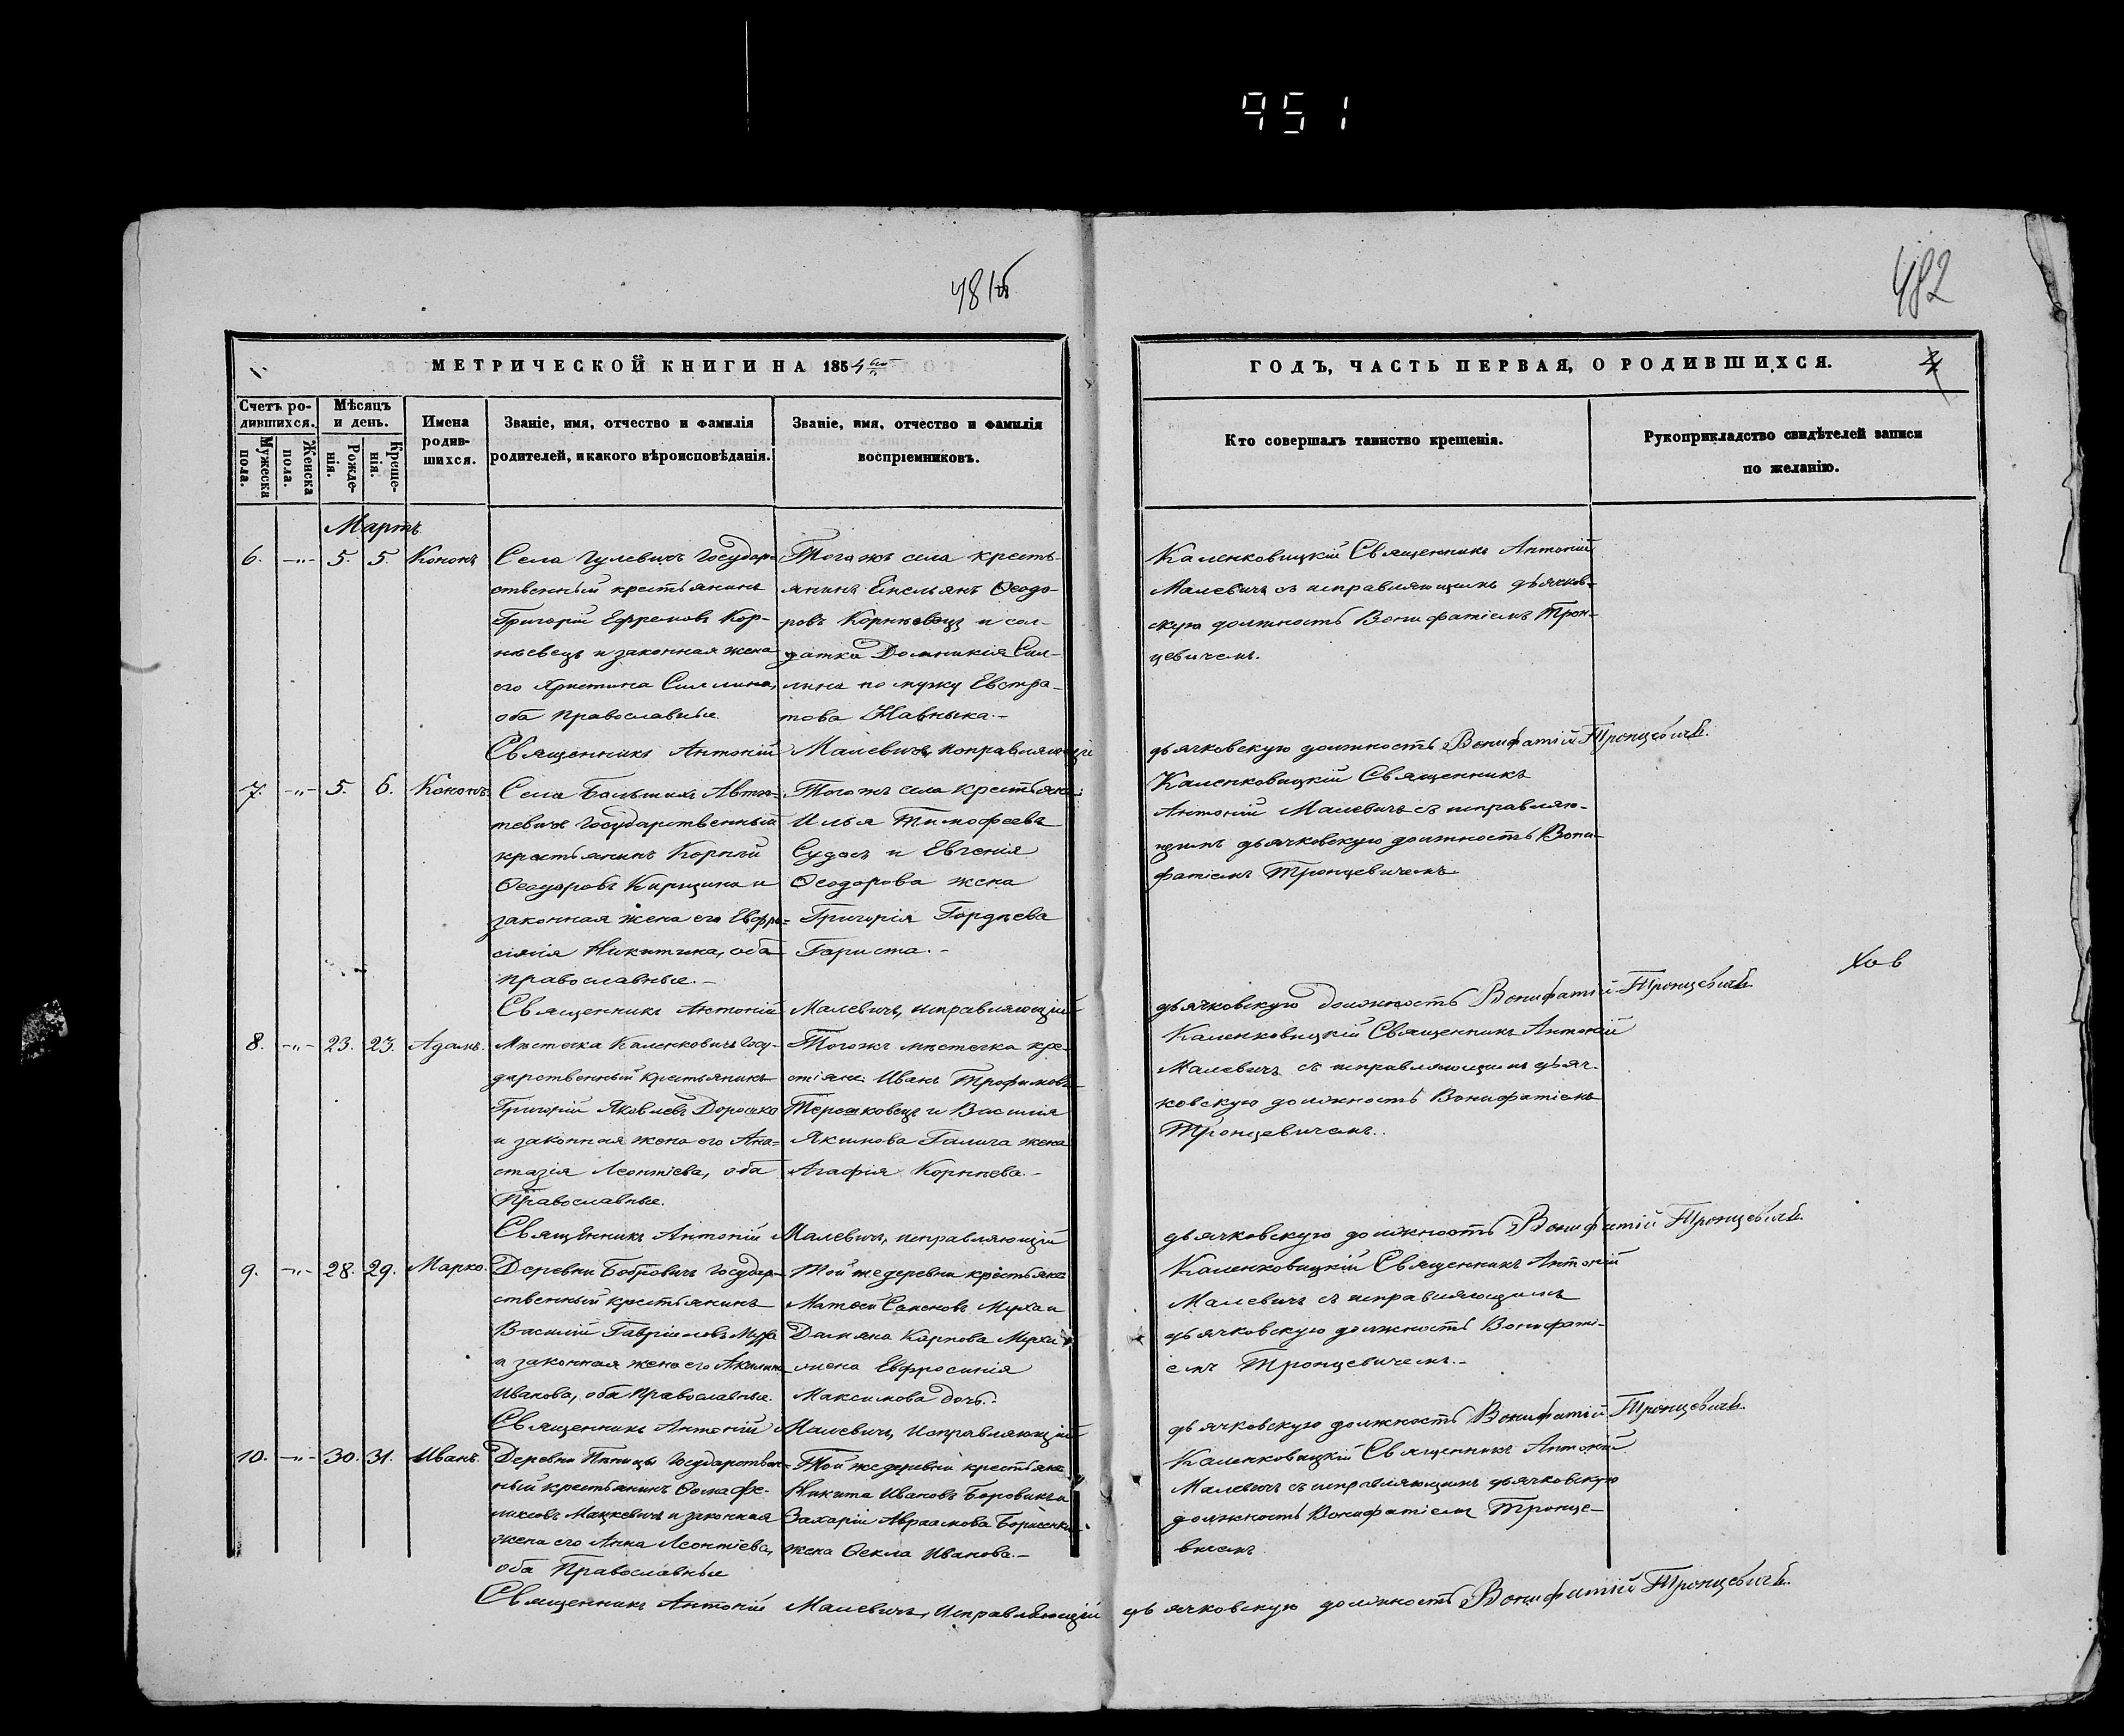 951
481б
482
МЕТРИЧЕСКОЙ КНИГИ НА 1854
ГОДЪ, ЧАСТЬ ПЕРВАЯ, О РОДИВШИХСЯ.
Счетъ ро-
дившихся.
Мужеска
пола.
Женска
пола.
Мѣсяцъ
и день.
Рожде-
нія.
Креще-
нія.
Имена
родив-
шихся.
Званіе, имя, отчество и фамилія
родителей, и какого вѣроисповѣданія.
Званіе, имя, отчество и фамилія
воспріемниковъ.
Кто совершалъ таинство крещенія.
Рукоприкладство свидѣтелей записи
по желанію.
Мартъ
6. -„- 5. 5. Кононъ
Села Гулевичъ Государ-
ственный крестьянинъ
Григорій Ефремовъ Кор-
нѣевецъ и законная жена
его Христина
оба православные.
Тогожъ села кресть-
янинъ Емельянъ Ѳеодо-
ровъ Корнѣевецъ и сол-
датка Домникія Сил-
лина по мужу Евстра-
това
Каленковицкій Священникъ Антоній
Малевичъ съ исправляющимъ дьячков-
скую должность Вонифатіемъ Трон-
цевичемъ.
Священникъ Антоній Малевичъ, исправляющій дьячковскую должность Вонифатій Тронцевичъ.
7. -„- 5. 6. Кононъ.
Села Большихъ Автю-
тевичъ Государственный
крестьянинъ Корнѣй
Ѳеодоровъ и
законная жена его Евфро-
синія Никитина, оба
православные.-
Тогожъ села крестьяне:
Илья Тимофеевъ
Судасъ и Евгенія
Ѳеодорова жена
Григорія Гордѣева
Гариста.-
Каленковицкій Священникъ
Антоній Малевичъ съ исправляю-
щимъ дьячковскую должность Вони-
фатіемъ Тронцевичемъ
Священникъ Антоній Малевичъ, исправляющій дьячковскую должность Вонифатій Тронцевичъ.
8. -„- 23. 23. Адамъ.
Мѣстечка Каленковичъ Госу-
дарственный крестьянинъ
Григорій Яковлевъ Дорошко
и законная жена его Ана-
стазія Леонтіева, оба
Православные.
Тогожъ мѣстечка кре-
стіяне: Иванъ Трофимовъ
Терешковецъ и Василія
Якимова Галича жена
Агафія Корнѣева.-
Каленковицкій Священникъ Антоній
Малевичъ съ исправляющимъ дьяч-
ковскую должность Вонифатіемъ
Тронцевичемъ.
Священникъ Антоній Малевичъ, исправляющій дьячковскую должность Вонифатій Тронцевичъ.
9. -„- 28. 29. Марко.
Деревни Бобровичъ Государ-
ственный крестьянинъ
Василій Гавріиловъ Муха
и законная жена его Акилина
Иванова, оба Православные.
Той же деревни крестьяне
Матвей Саконовъ Муха и
Дамяна Карпова Мухи
жена Евфросинія
Максимова дочь.
Каленковицкій Священникъ Антоній
Малевичъ съ исправляющимъ
дьячковскую должность Вонифаті-
емъ Тронцевичемъ.-
Священникъ Антоній Малевичъ, Исправляющій дьячковскую должность Вонифатій Тронцевичъ.
10. -„- 30. 31. Иванъ.
Деревни Пѣницы Государствен-
ный крестьянинъ Ѳома Фе-
ликсовъ Мацкевичъ и законная
жена его Анна Леонтіева,
оба Православные
Той же деревни крестьяне
Никита Ивановъ Боровикъ и
Захарія Авраамова Борисенки
жена Ѳекла Иванова.-
Каленковицкій Священникъ Антоній
Малевичъ съ исправляющимъ дьячковскую
должность Вонифатіемъ Тронце-
вичемъ
Священникъ Антоній Малевичъ, Исправляющій дьячковскую должность Вонифатій Тронцевичъ.